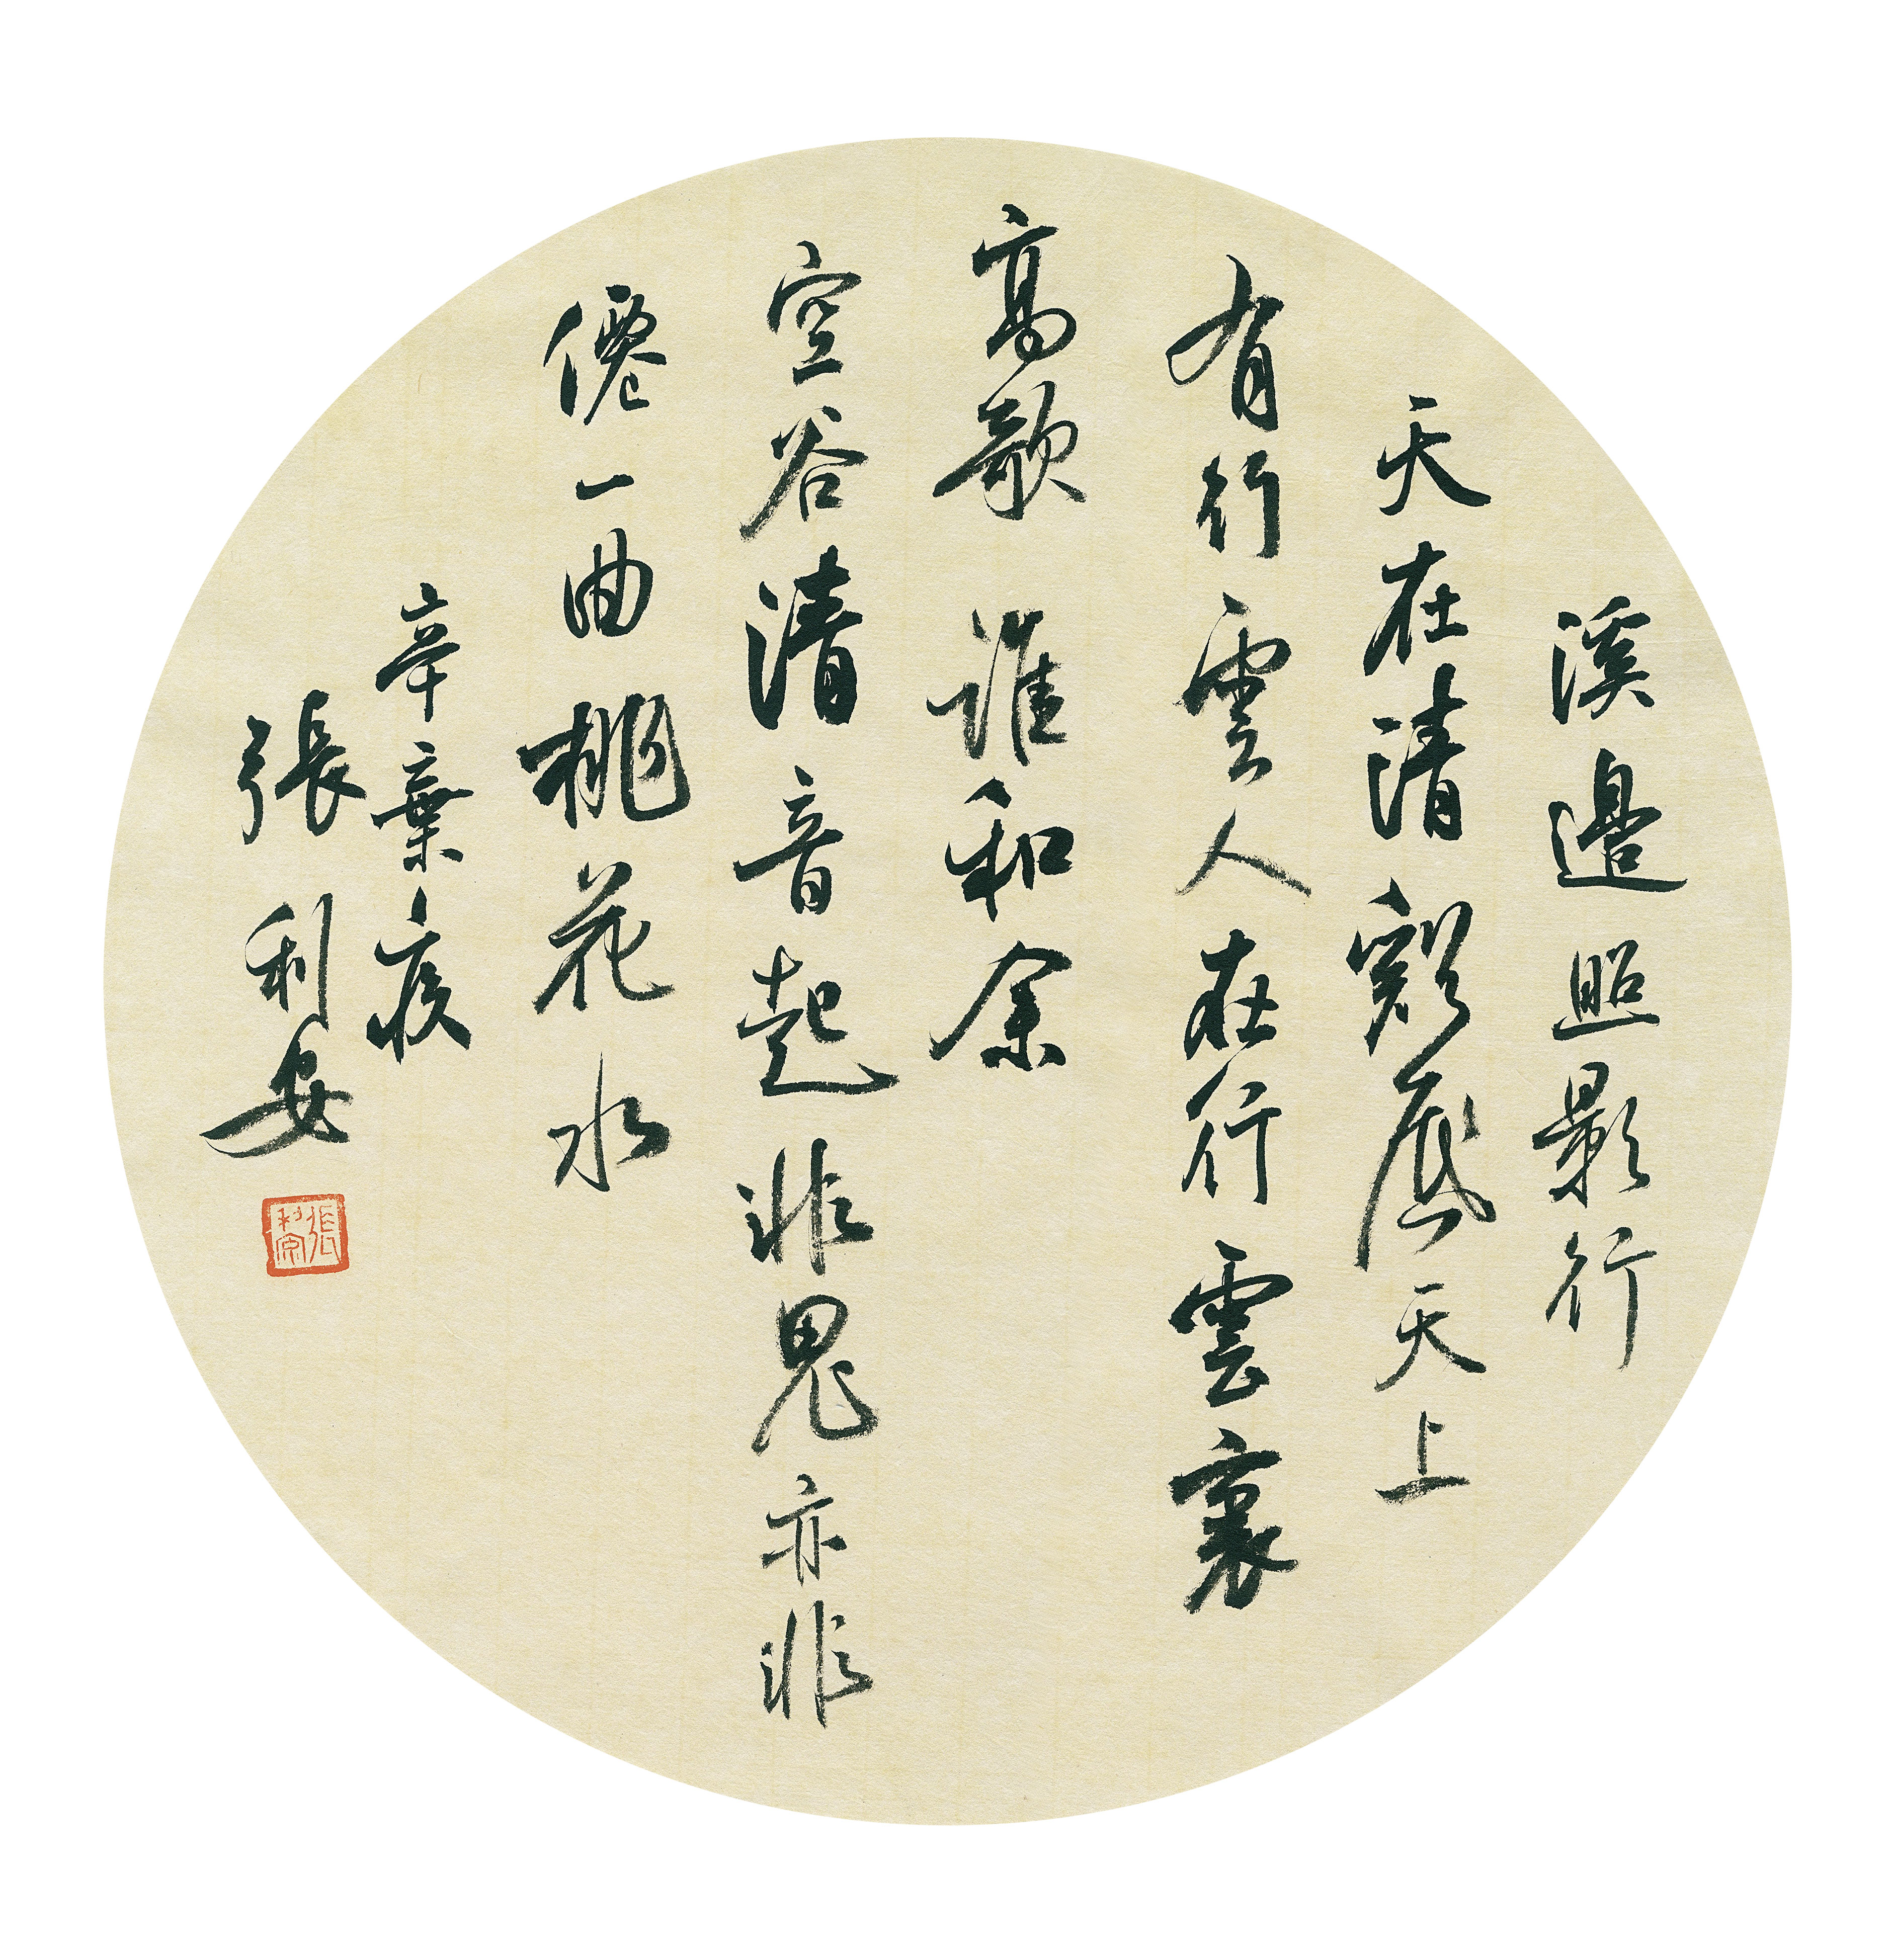 溪邊照影行
天在清谿底天上
有行雲人在行雲裏
高歌誰和余
空谷清音起非鬼亦非
僊一曲桃花水
辛棄疾
張利安
張利安